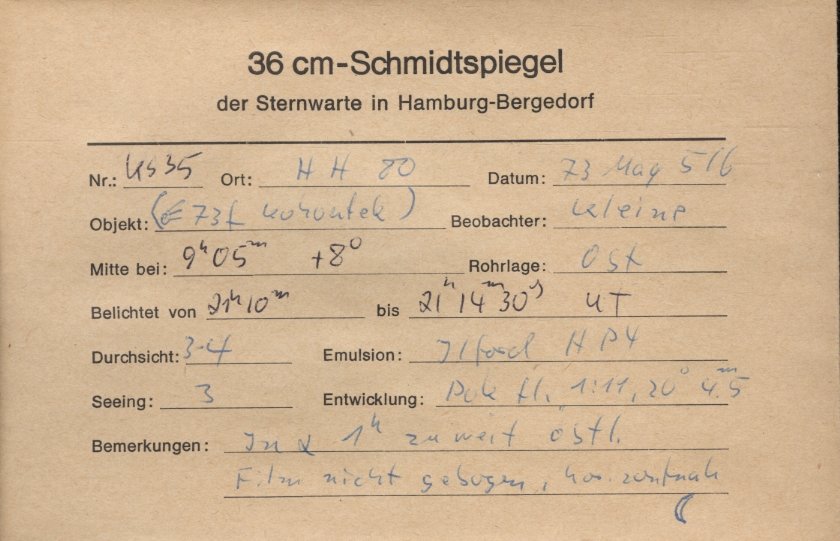 36 cm-Schmidtspiegel
der Sternwarte in Hamburg-Bergedorf
Nr.: KS35 Ort: HH 80 Datum: 73 May 5/6
Objekt: (73f Kohoutek) Beobachter: Kleine
Mitte bei: 9h 05m +8° Rohrlage: Ost
Belichtet von 21h 10m bis 21h 14m 30s UT
Durchsicht: 3-4 Emulsion: Ilford HP4
Seeing: 3 Entwicklung: fl. 1:11, 20° 4m5
Bemerkungen: In α 1h zu weit östl.
Film nicht gebogen, horizontnah